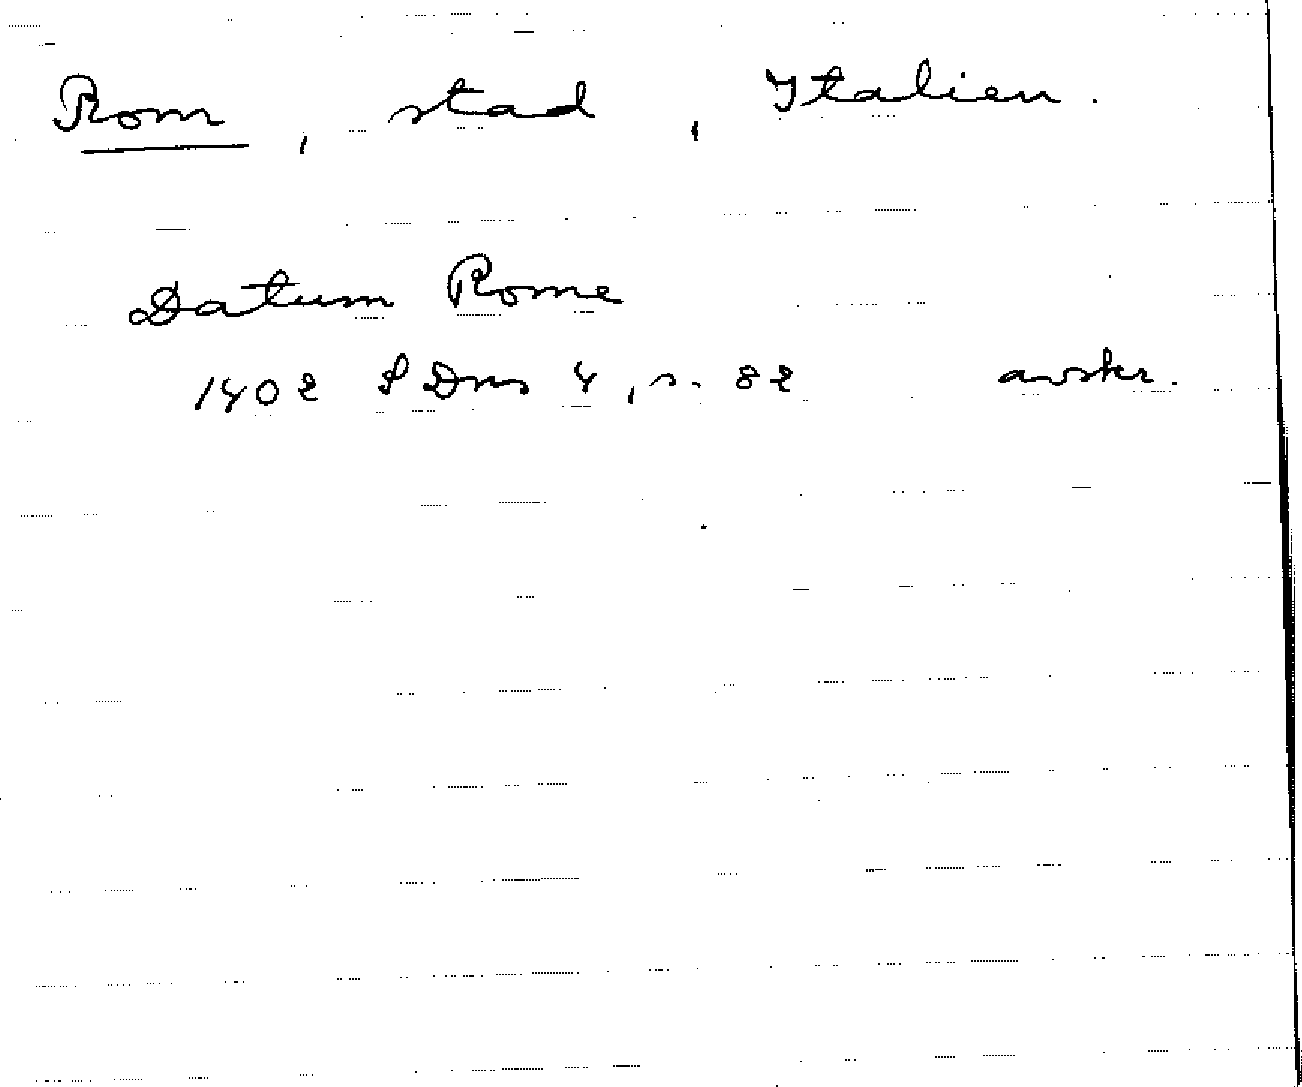 Rom, stad, Italien.
Datum Rome
1402 SDns 4, s. 82 avskr.